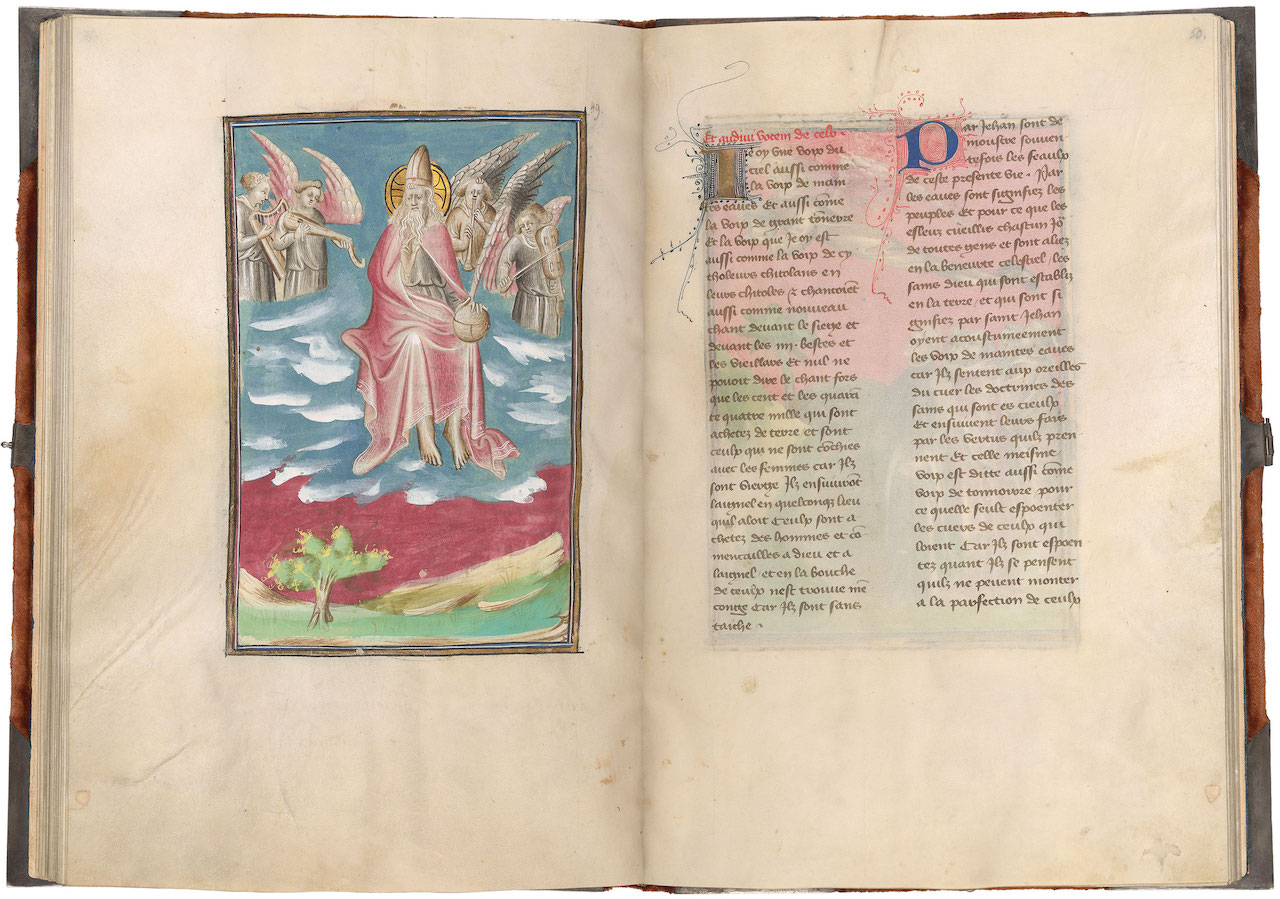 49
50.
Et audivi vocem de celo.
Je oy une voix du
ciel aussi comme
la voix de main
tes eaues Et aussi cōme
la voix de grant tōnerre
Et la voix que Je oy est
aussi comme la voix de cy
tholeurs chitolans en
leurs chitoles & chantoiēt
aussi comme nouveau
chant devant le siege et
devant les iiij. bestes et
les vieillars Et nul ne
pouoit dire le chant fors
que les cent et les quarā
te quatre mille qui sont
achetez de terre et sont
ceulx qui ne sont cōchies
avec les femmes car Ilz
sont vierge Ilz ensuiuent
laignel en quelconq lieu
quil aloit Ceulx sont a
chetez des hommes et cō
mencailles a dieu et a
laignel et en la bouche
de ceulx nest trouve mē
conge Car Ilz sont sans
taiche.
Par Jehan sont de
moustre souuen
tesfois les feaulx
de ceste presente vie. Par
les eaues sont signifiez les
peuples Et pour ce que les
esleuz cueillis chascun Jō
de toutes gens et sont aliez
en la beneurte celestiel, les
sains dieu qui sont establiz
en la terre, et qui sont si
gnifiez par saint Jehan
oyent acoustumeement
les voix de maintes eaues
car Ilz sentent aux oreilles
du cuer les doctrines des
sains qui sont es cieulx
Et ensuiuent leurs fais
par les vertus quilz pren
nent Et celle meisme
voix est ditte aussi cōme
voix de tonnoirre pour
ce quelle seult espoenter
les cuers de ceulx qui
loient Car Ilz sont espoen
tez quant Ilz se pensent
quilz ne peuent monter
a la parfection de ceulx